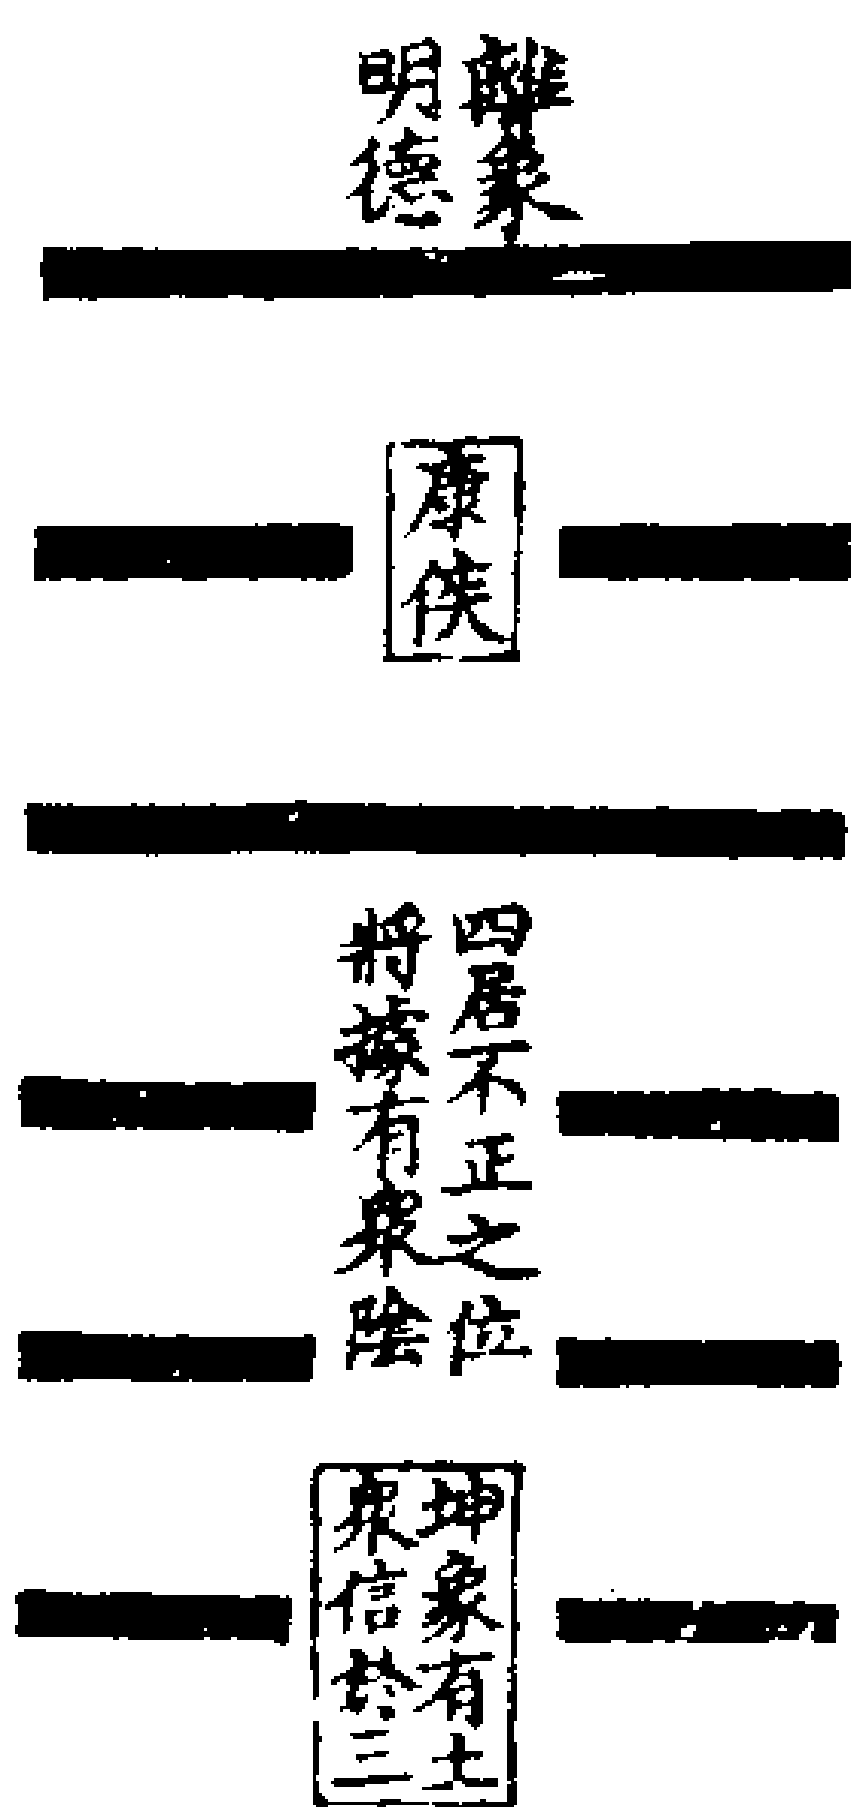 離象
明德
康侯
四居不正之位
將據有衆陰
坤象有土
衆信於三